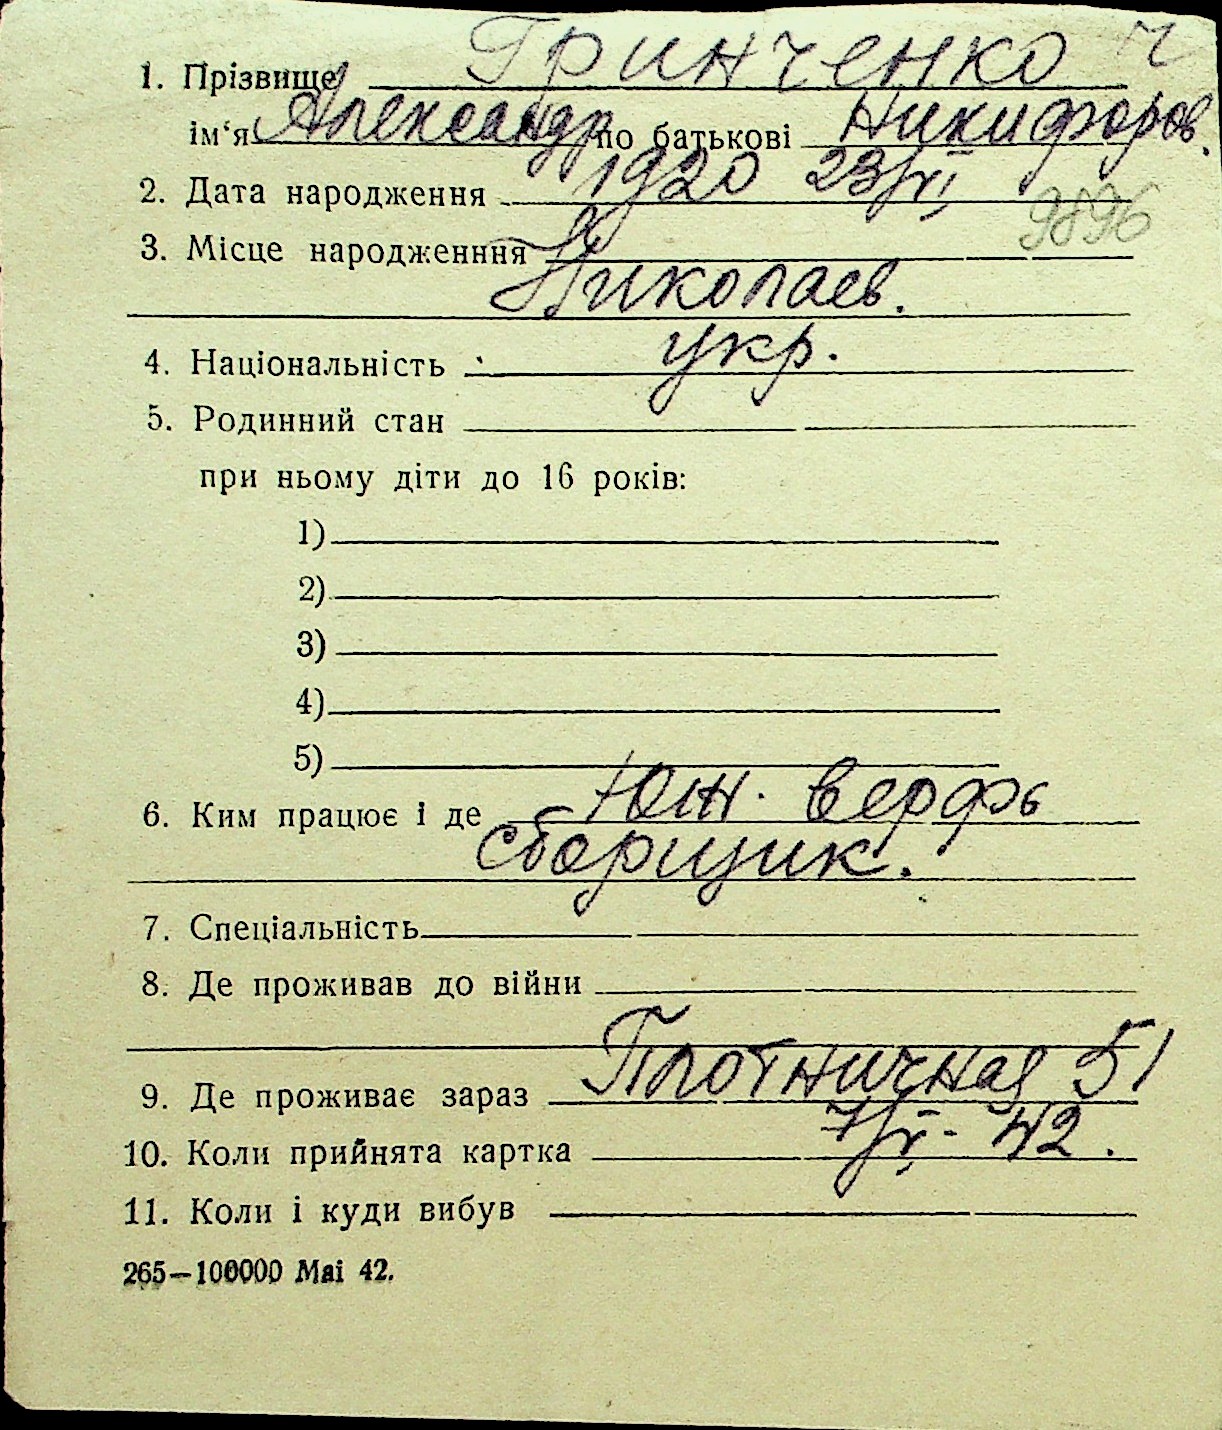 1. Прізвище Гринченко ч
ім‘я Александр по батькові Никифоров.
2. Дата народження 1920 23/VI
3. Місце народженння 9896
Николаев.
4. Національність укр.
5. Родинний стан
при ньому діти до 16 років:
1)
2)
3)
4)
5)
6. Ким працює і де Юж. верфь
сборщик.
7. Спеціальність
8. Де проживав до війни
9. Де проживає зараз Плотничная 51
10. Коли прийнята картка 7/V-42.
11. Коли і куди вибув
265—100000 Mai 42.